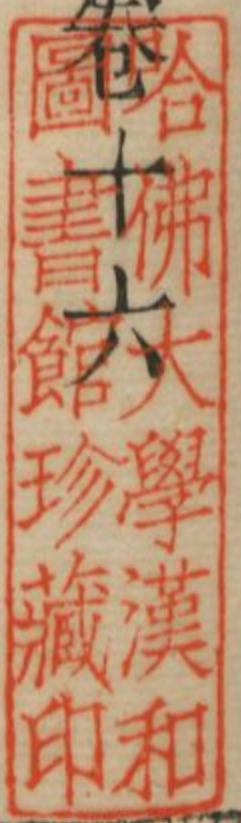 卷十六
哈佛大學漢和
圖書館珍藏印